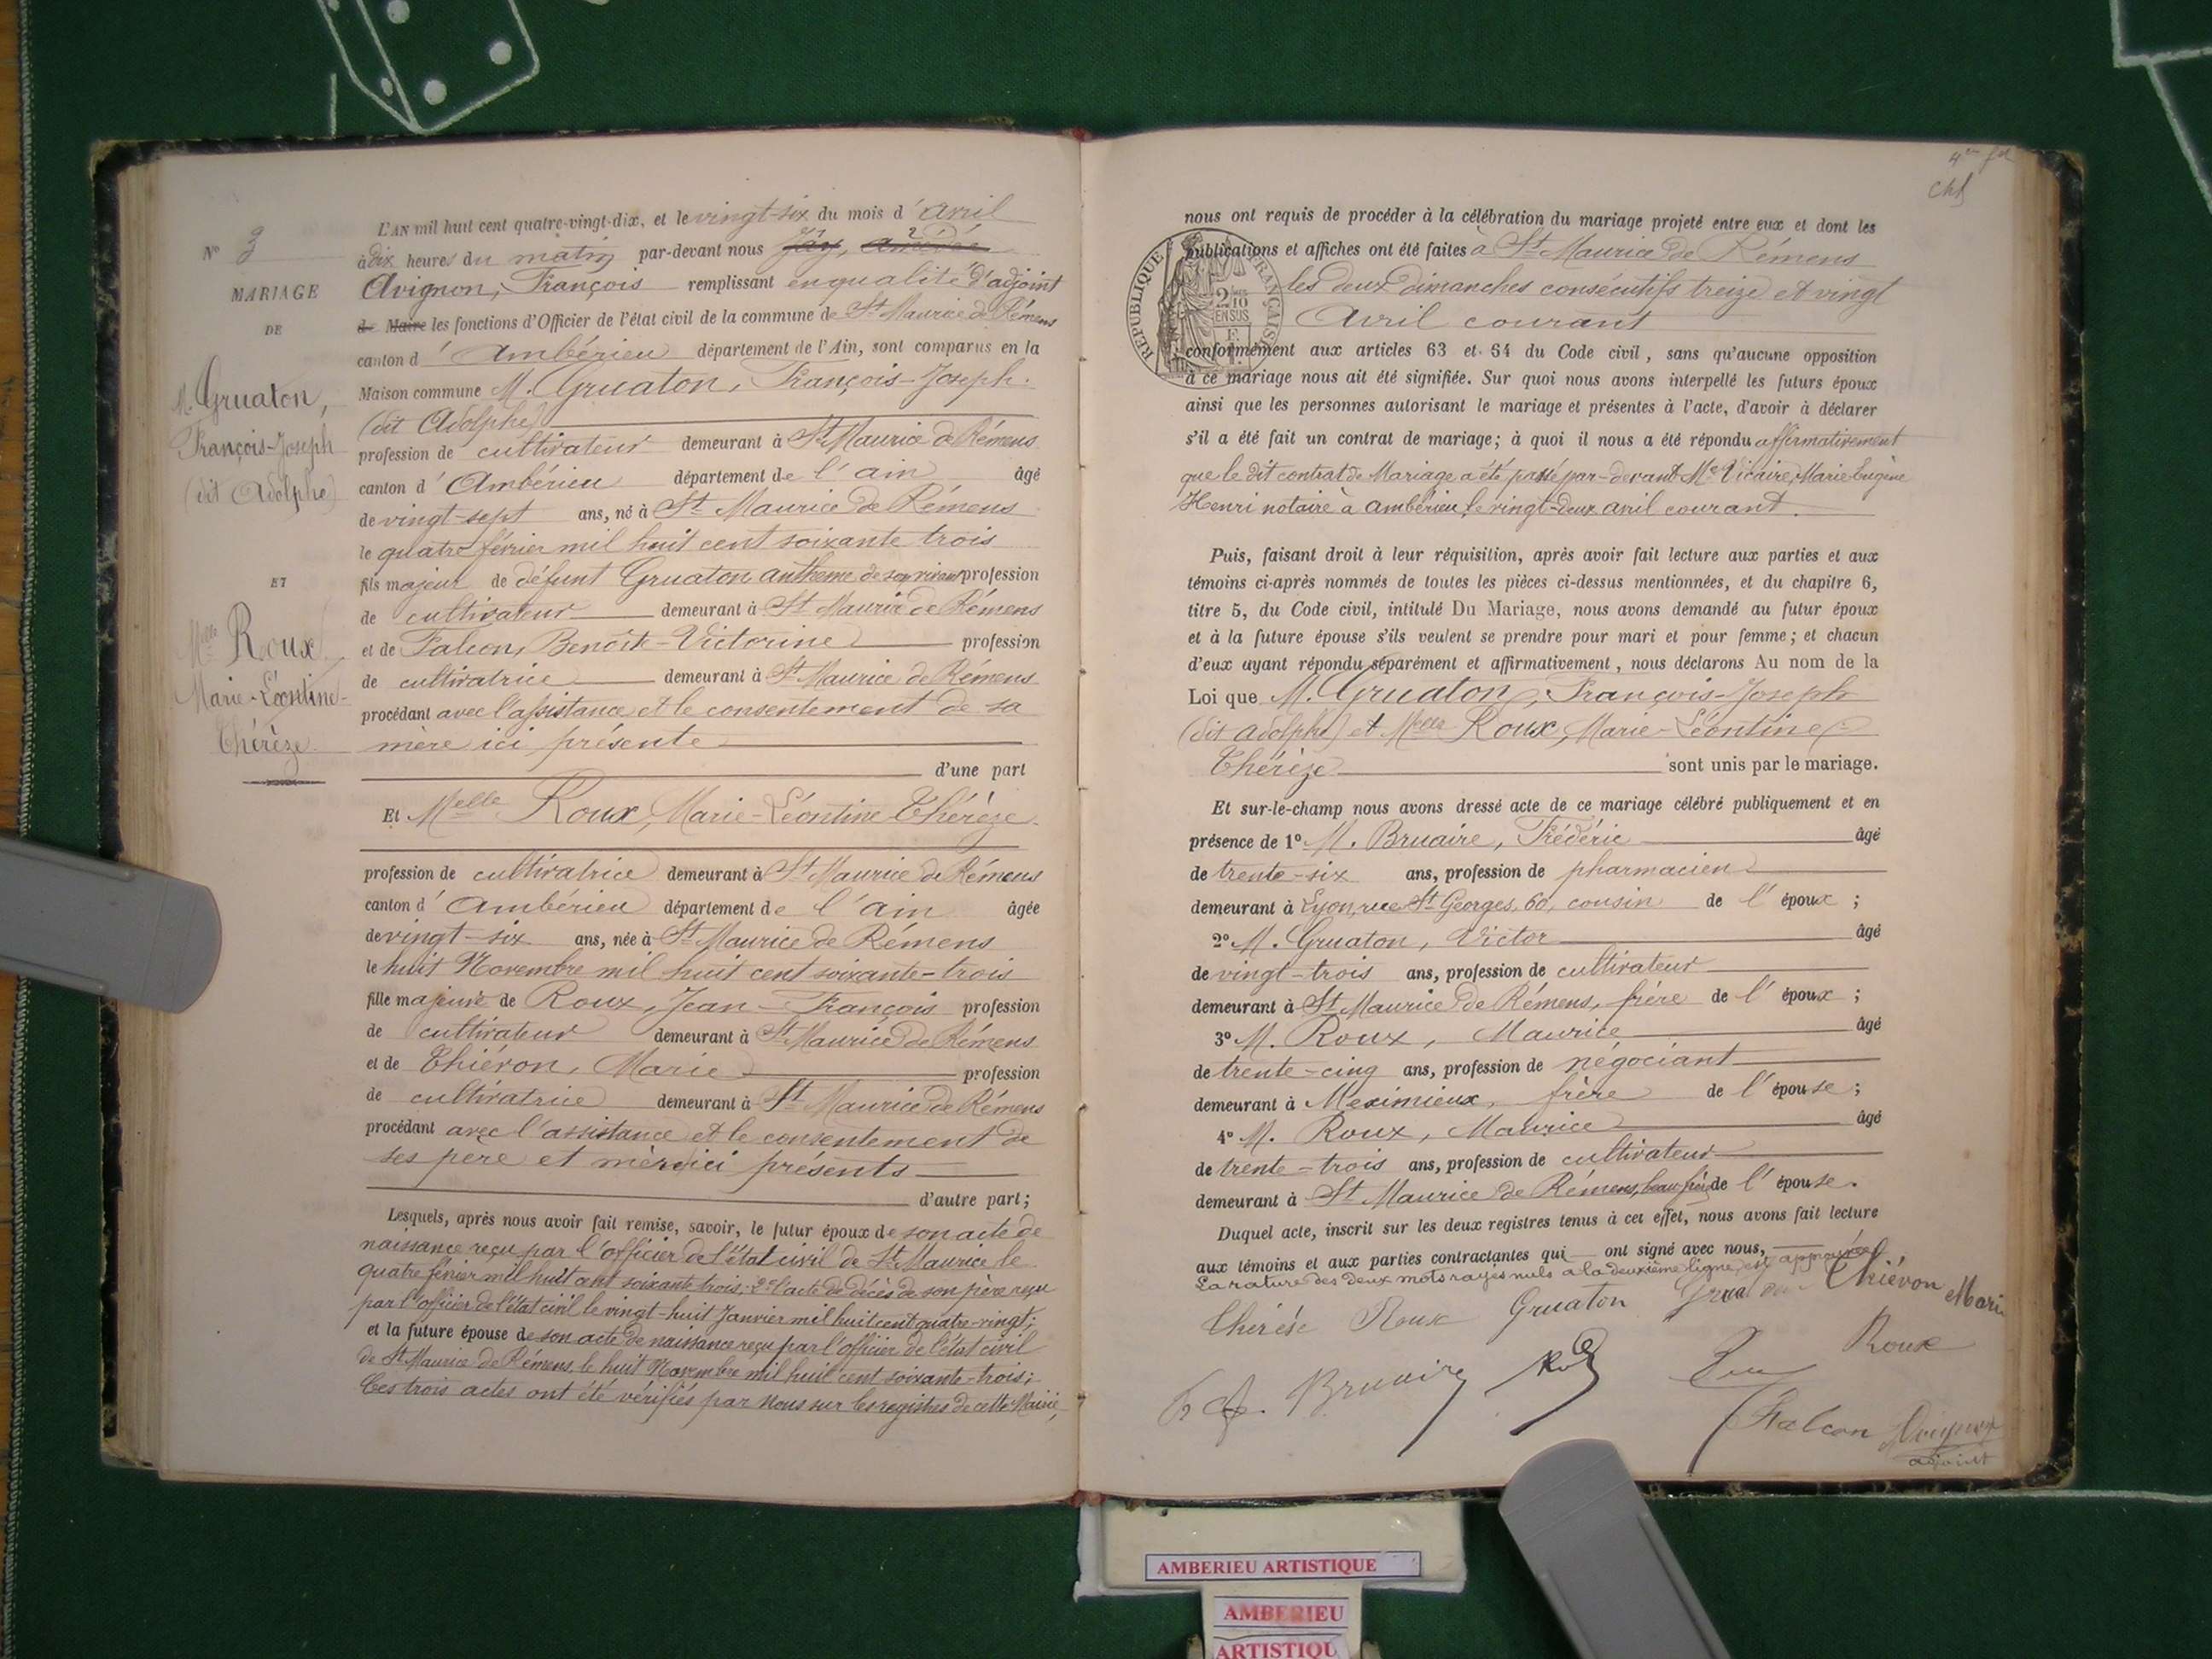 N° 3
MARIAGE
DE
M. Gruaton,
François-Joseph
(dit Adolphe)
ET
Melle Roux
Marie-Léontine-
Thérèze
L'AN mil huit cent quatre-vingt-dix, et le vingt-six du mois d'avril
à dix heures du matin par-devant nous Jay, Amédée
Avignon, François remplissant en qualité d'adjoint
de Maire les fonctions d'Officier de l'état civil de la commune de St Maurice de Rémens
canton d'Ambérieu département de l'Ain, sont comparus en la
Maison commune M. Gruaton, François-Joseph.
(dit Adolphe)
profession de cultivateur demeurant à St Maurice de Rémens
canton d'Ambérieu département de l'ain âgé
de vingt-sept ans, né à St Maurice de Rémens
le quatre février mil huit cent soixante trois
fils majeur de défunt Gruaton Antheme de son vivant profession
de cultivateur demeurant à St Maurice de Rémens
et de Falcon, Benoîte-Victorine profession
de cultivatrice demeurant à St Maurice de Rémens
procédant avec l'assistance et le consentement de sa
mère ici présente
d'une part
Et Melle Roux, Marie-Léontine-Thérèze.
profession de cultivatrice demeurant à St Maurice de Rémens
canton d'Ambérieu département de l'ain âgée
de vingt-six ans, née à St Maurice de Rémens
le huit Novembre mil huit cent soixante-trois
fille majeure de Roux, Jean-François profession
de cultivateur demeurant à St Maurice de Rémens
et de Thiévon, Marie profession
de cultivatrice demeurant à St Maurice de Rémens
procédant avec l'assistance et le consentement de
ses pere et mère ici présents
d'autre part;
Lesquels, après nous avoir fait remise, savoir, le futur époux de son acte de
naissance reçu par l'officier de l'état civil de St Maurice le
quatre février mil huit cent soixante trois; 2° l'acte de décès de son père reçu
par l'officier de l'état civil le vingt-huit Janvier mil huit cent quatre-vingt;
et la future épouse de son acte de naissance reçu par l'officier de l'état civil
de St Maurice de Rémens, le huit Novembre mil huit cent soixante-trois;
Ces trois actes ont été vérifiés par Nous sur les registres de cette Mairie,
RÉPUBLIQUE FRANÇAISE
2/10 EN SUS
nous ont requis de procéder à la célébration du mariage projeté entre eux et dont les
publications et affiches ont été faites à St Maurice de Rémens
les deux dimanches consécutifs treize et vingt
Avril courant
conformément aux articles 63 et 64 du Code civil, sans qu'aucune opposition
à ce mariage nous ait été signifiée. Sur quoi nous avons interpellé les futurs époux
ainsi que les personnes autorisant le mariage et présentes à l'acte, d'avoir à déclarer
s'il a été fait un contrat de mariage; à quoi il nous a été répondu affirmativement
que le dit contrat de Mariage a été passé par-devant Me Vicaire, Marie Eugène
Henri notaire à Ambérieu, le vingt-deux avril courant.
Puis, faisant droit à leur réquisition, après avoir fait lecture aux parties et aux
témoins ci-après nommés de toutes les pièces ci-dessus mentionnées, et du chapitre 6,
titre 5, du Code civil, intitulé Du Mariage, nous avons demandé au futur époux
et à la future épouse s'ils veulent se prendre pour mari et pour femme; et chacun
d'eux ayant répondu séparément et affirmativement, nous déclarons Au nom de la
Loi que M. Gruaton, François-Joseph
(dit adolphe) et Melle Roux, Marie-Léontine
Thérèze sont unis par le mariage.
Et sur-le-champ nous avons dressé acte de ce mariage célébré publiquement et en
présence de 1° M. Bruaire, Frédéric âgé
de trente-six ans, profession de pharmacien
demeurant à Lyon, rue St Georges, 60, cousin de l'époux;
2° M. Gruaton, Victor âgé
de vingt-trois ans, profession de cultivateur
demeurant à St Maurice de Rémens, frère de l'époux;
3° M. Roux, Maurice âgé
de trente-cinq ans, profession de négociant
demeurant à Meximieux, frère de l'épouse;
4° M. Roux, Maurice âgé
de trente-trois ans, profession de cultivateur
demeurant à St Maurice de Rémens, beau frère de l'épouse.
Duquel acte, inscrit sur les deux registres tenus à cet effet, nous avons fait lecture
aux témoins et aux parties contractantes qui ont signé avec nous,
La rature des deux mots rayés nuls à la deuxième ligne est approuvée
Thérèse Roux Gruaton Thiévon Marie
Roux
Bruaire
Falcon Avignon
adjoint
AMBERIEU ARTISTIQUE
AMBERIEU
ARTISTIQU